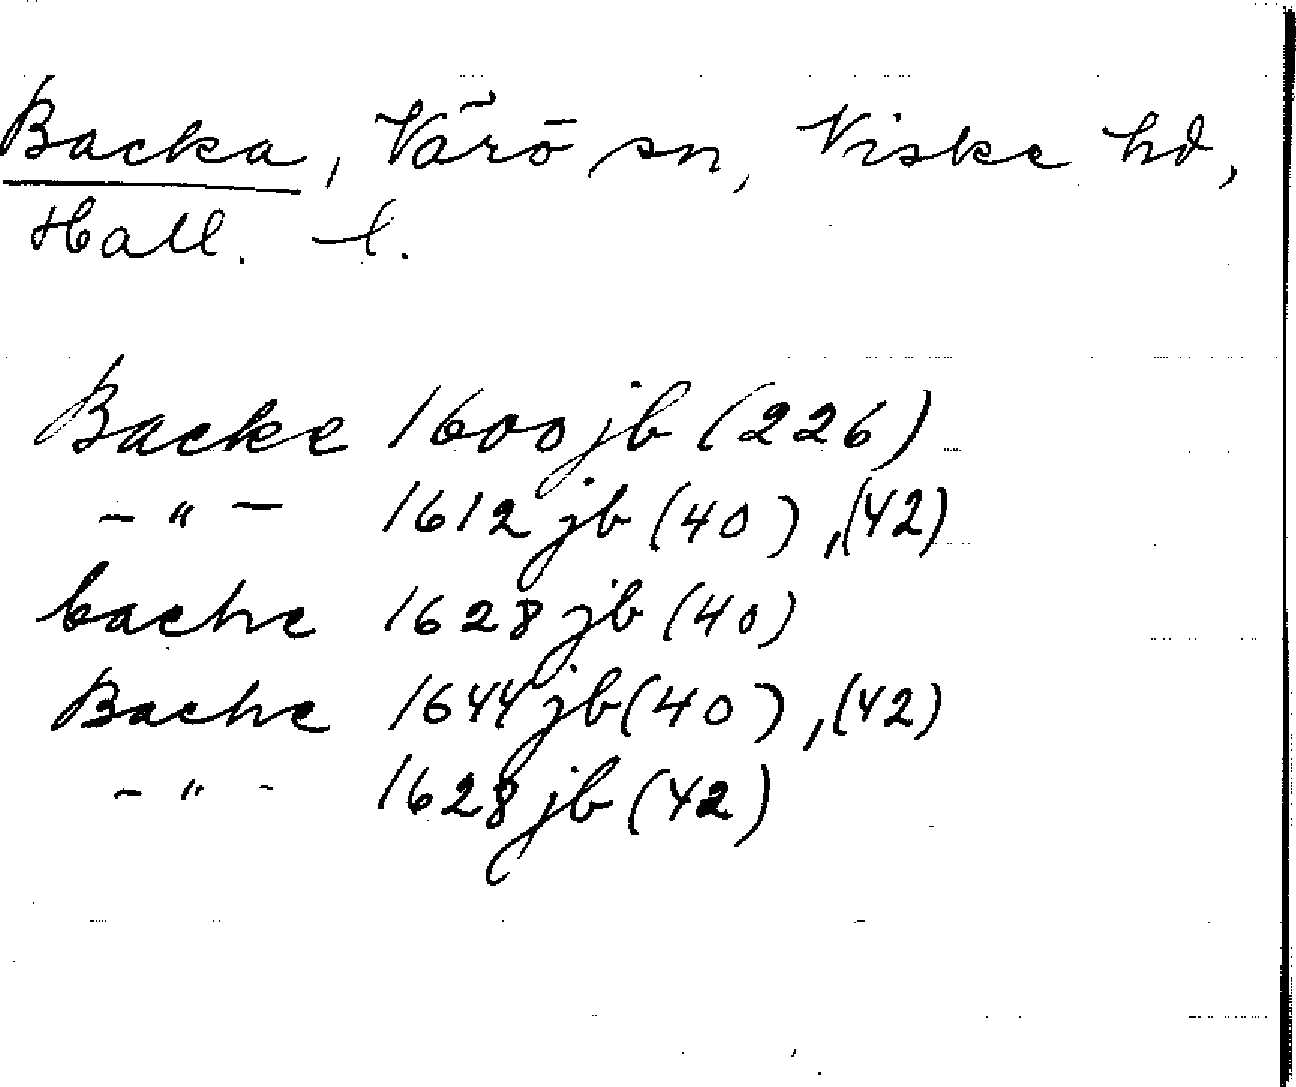 Backa, Värö sn, Viske hd,
Hall. l.
Backe 1600 jb (226)
-"- 1612 jb (40), (42)
bache 1628 jb (40)
Bache 1644 jb (40), (42)
-"- 1628 jb (42)